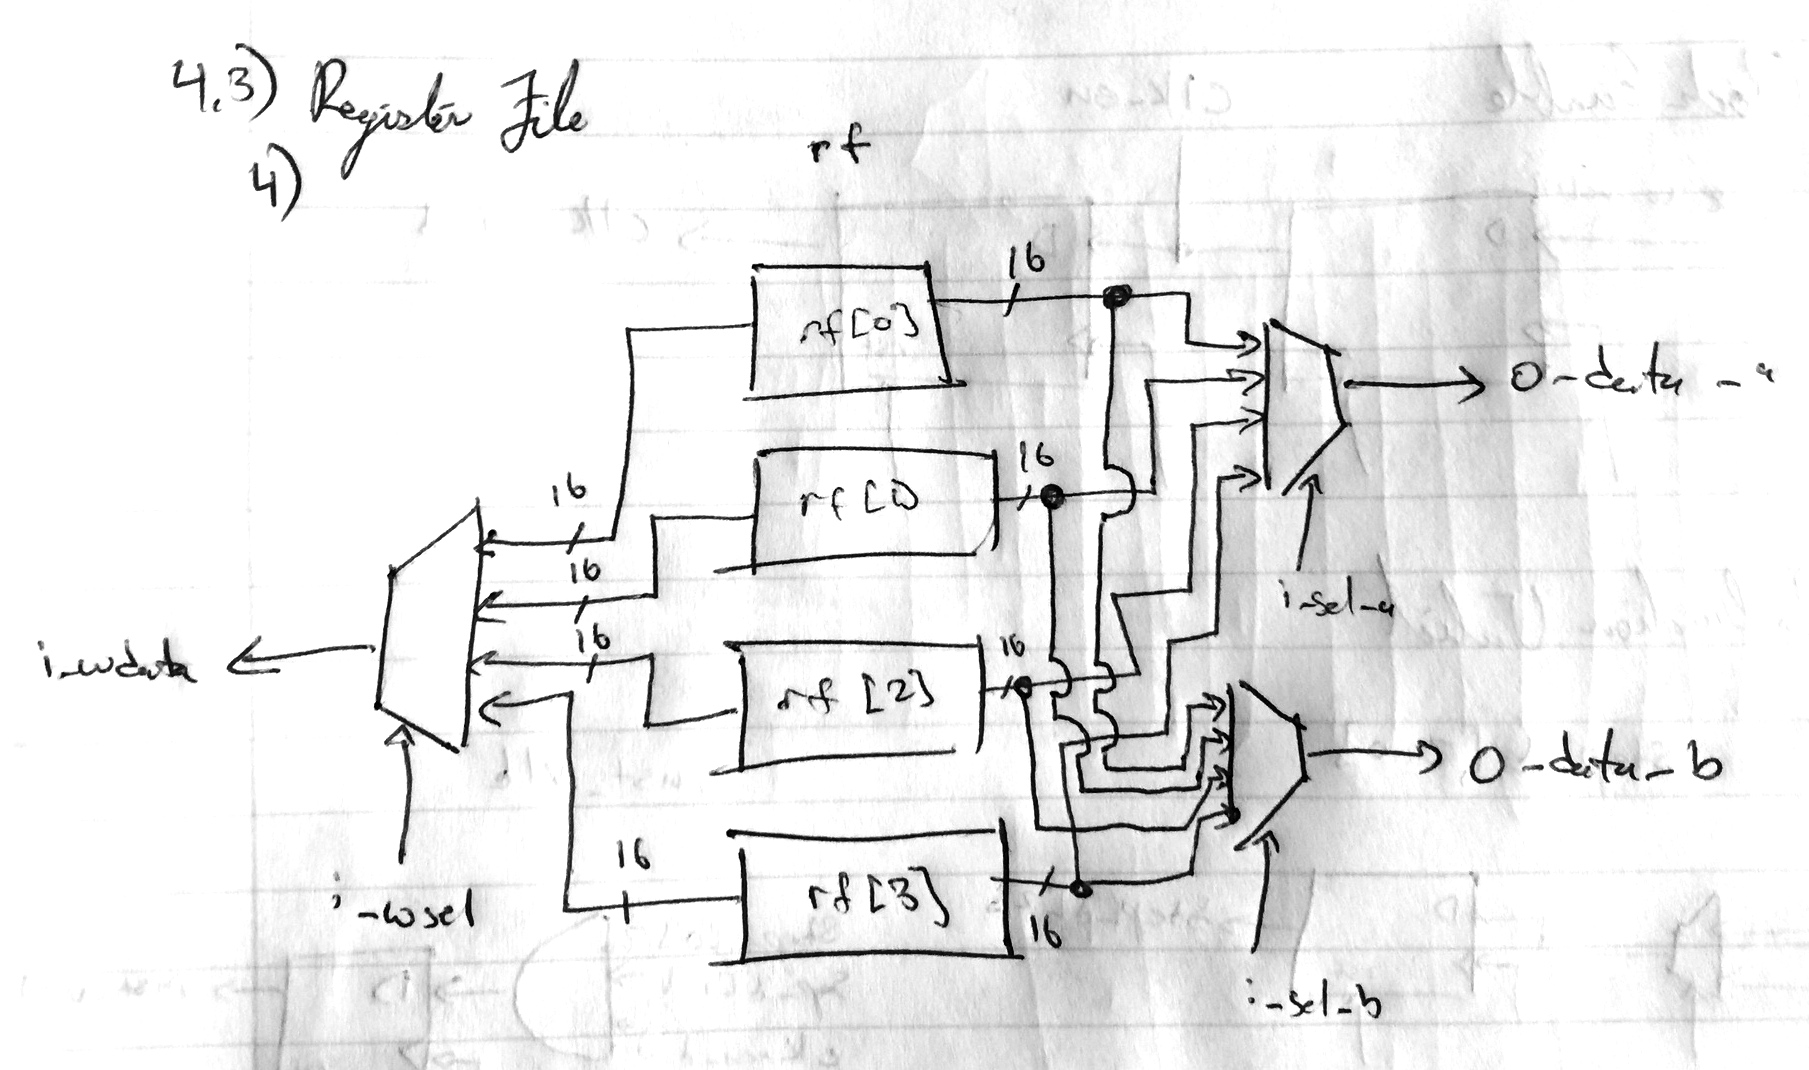 4.3) Register File
4)
rf
16
rf[0]
O-data-a
16
rf[1]
16
16
i-sel-a
16
16
16
i-wdata
rf[2]
O-data-b
16
rf[3]
i-wsel
16
i-sel-b